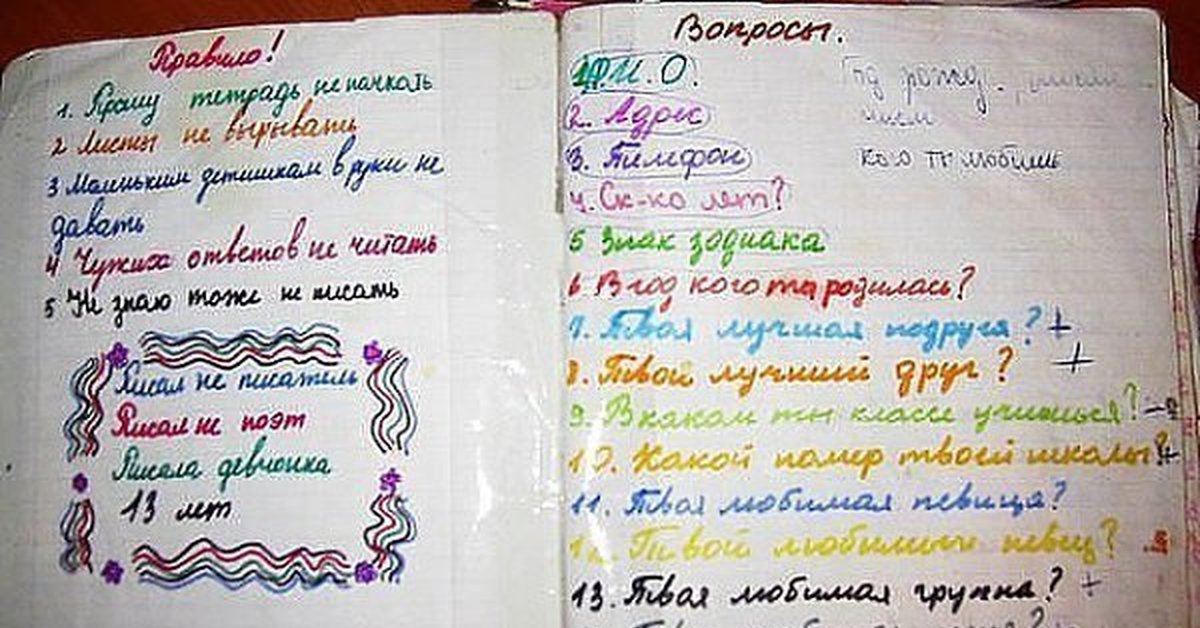 Правило!
1. Прошу тетрадь не пачкать
2 Листы не вырывать
3 Маленьким детишкам в руки не
давать
4 Чужих ответов не читать
5 Не знаю тоже не писать
Писал не писатель
Писал не поэт
Писала девчонка
13 лет
Вопросы.
1. Ф.И.О.
2. Адрес
3. Тилефон
4. Ск-ко лет?
5 Знак зодиака
6 В год кого ты родилась?
7. Твоя лучшая подруга? +
8. Твой лучший друг? +
9. В каком ты классе учишься? –
10. Какой номер твоей школы? +
11. Твоя любимая певица?
12. Твой любимый певец?
13. Твоя любимая группа? +
Год рожд.
кого ты любишь